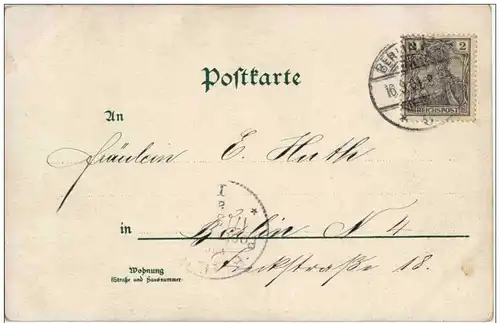 BERLIN
2 2
16.9.01
REICHSPOST
Postkarte
An
Fräulein E. Huth
in Berlin N 4
Tieckstraße 18.
Wohnung
(Straße und Hausnummer)